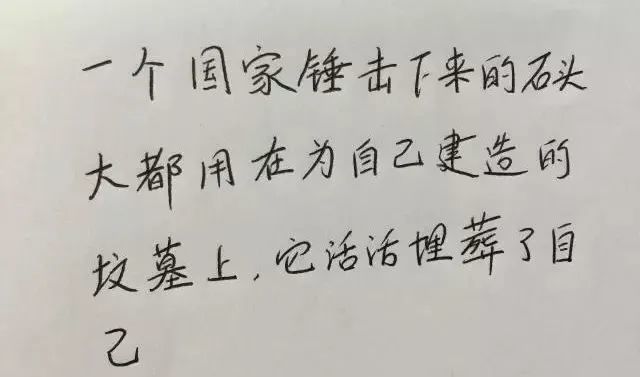 一个国家锤击下来的石头
大都用在为自己建造的
坟墓上,它活活埋葬了自
己